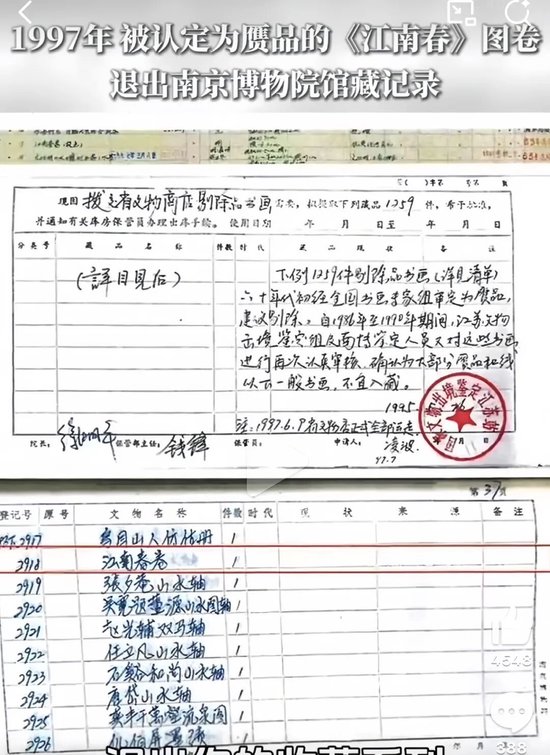 1997年 被认定为赝品的《江南春》图卷
退出南京博物院馆藏记录
现因 拨交省文物商店剔除品书画 需要，拟提取下列藏品 1259 件，希予批准，
并通知有关库房保管员办理出库手续。 使用日期 年 月 日至 年 月 日
分类号 藏品名称 件数 时代 藏品现状 备注
(详目见后)
下例1259件剔除品书画(详见清单)
六十年代初经全国书画专家组审定为赝品，
建议剔除。自1986年至1990年期间，江苏文物
出境鉴定组及南博鉴定人员又对这些书画
进行再次认真审核，确认为大部分赝品和线
以下一般书画，不宜入藏。
1995
注：1997.6.
院长： 保管部主任： 钱锋 保管员： 申请人： 凌波
97.7
文物出境鉴定江苏
第37页
登记号 原号 文物名称 件数 时代 现状 来源 备注
2917 1
2918 江南春卷 1
2919 张夕庵山水轴 1
2920 1
2921 赵光辅双马轴 1
2922 任立凡山水轴 1
2923 石溪和尚山水轴 1
2924 唐岱山水轴 1
2925 1
2926
4548
388